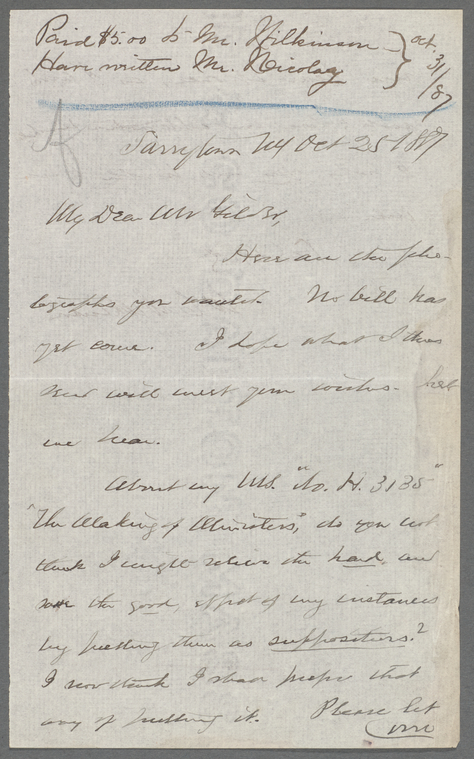 Paid $5.00 to Mr. Wilkinson
Have written Mr. Nicolay
Oct. 31/87
Tarrytown NY Oct 25 1887
My Dear Mr Gilder,
Here are the pho-
tographs you wanted. No bill has
yet come. I hope what I thus
send will meet your wishes - Let
me hear.
About my MS. "No. H. 3135"
"The Making of Ministers", do you not
think I might relieve the hard, and
the good, effect of my instances
by putting them as suppositions?
I now think I shall prefer that
way of putting it. Please let
me